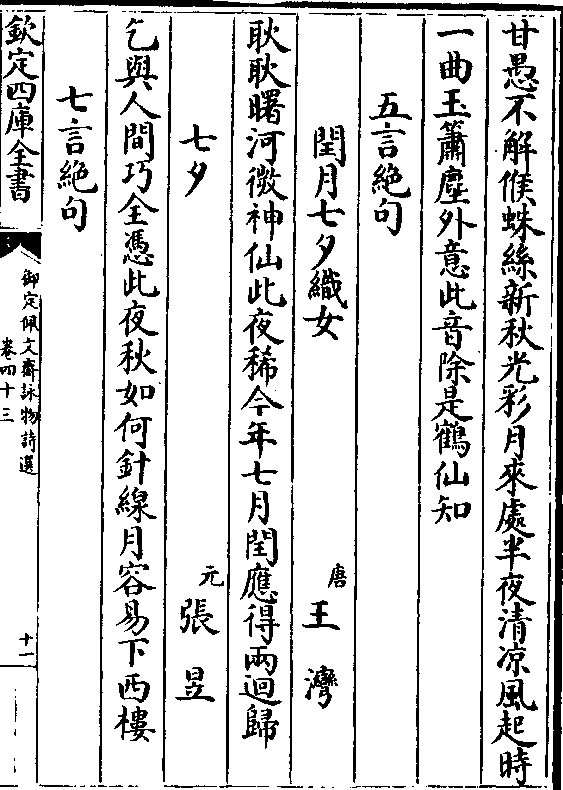 甘愚不解候蛛絲新秋光彩月來處半夜清凉風起時
一曲玉簫塵外意此音除是鶴仙知
五言絶句
閏月七夕織女
唐王灣
耿耿曙河微神仙此夜稀今年七月閏應得兩迴歸
七夕
元張昱
乞與人間巧全憑此夜秋如何針線月容易下西樓
七言絶句
欽定四庫全書
御定佩文齋詠物詩選
卷四十三
十一